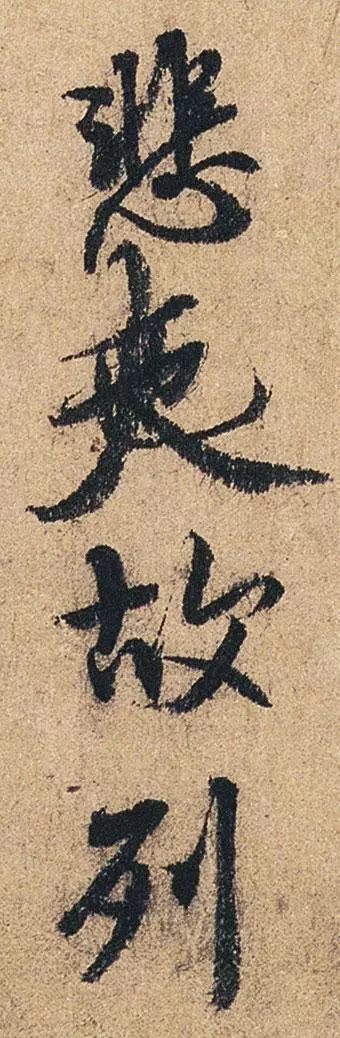 悲夫故列